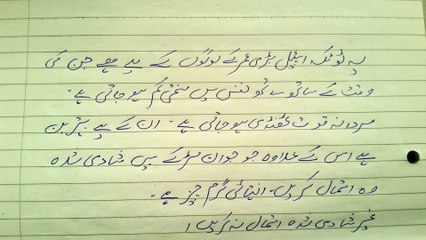 یہ ٹوٹکہ اسپیشل بڑی عمر کے لوگوں کے لیے ہے جن کی
وقت کے ساتھ ساتھ نفس میں سختی کم ہو جاتی ہے۔
مردانہ قوت ٹھنڈی ہو جاتی ہے۔ ان کے لیے بہترین
ہے اس کے علاوہ جو جوان لڑکے ہیں شادی شدہ
وہ استمال کریں۔ انتہائی گرم چیز ہے۔
غیر شادی شدہ استمال نہ کریں۔